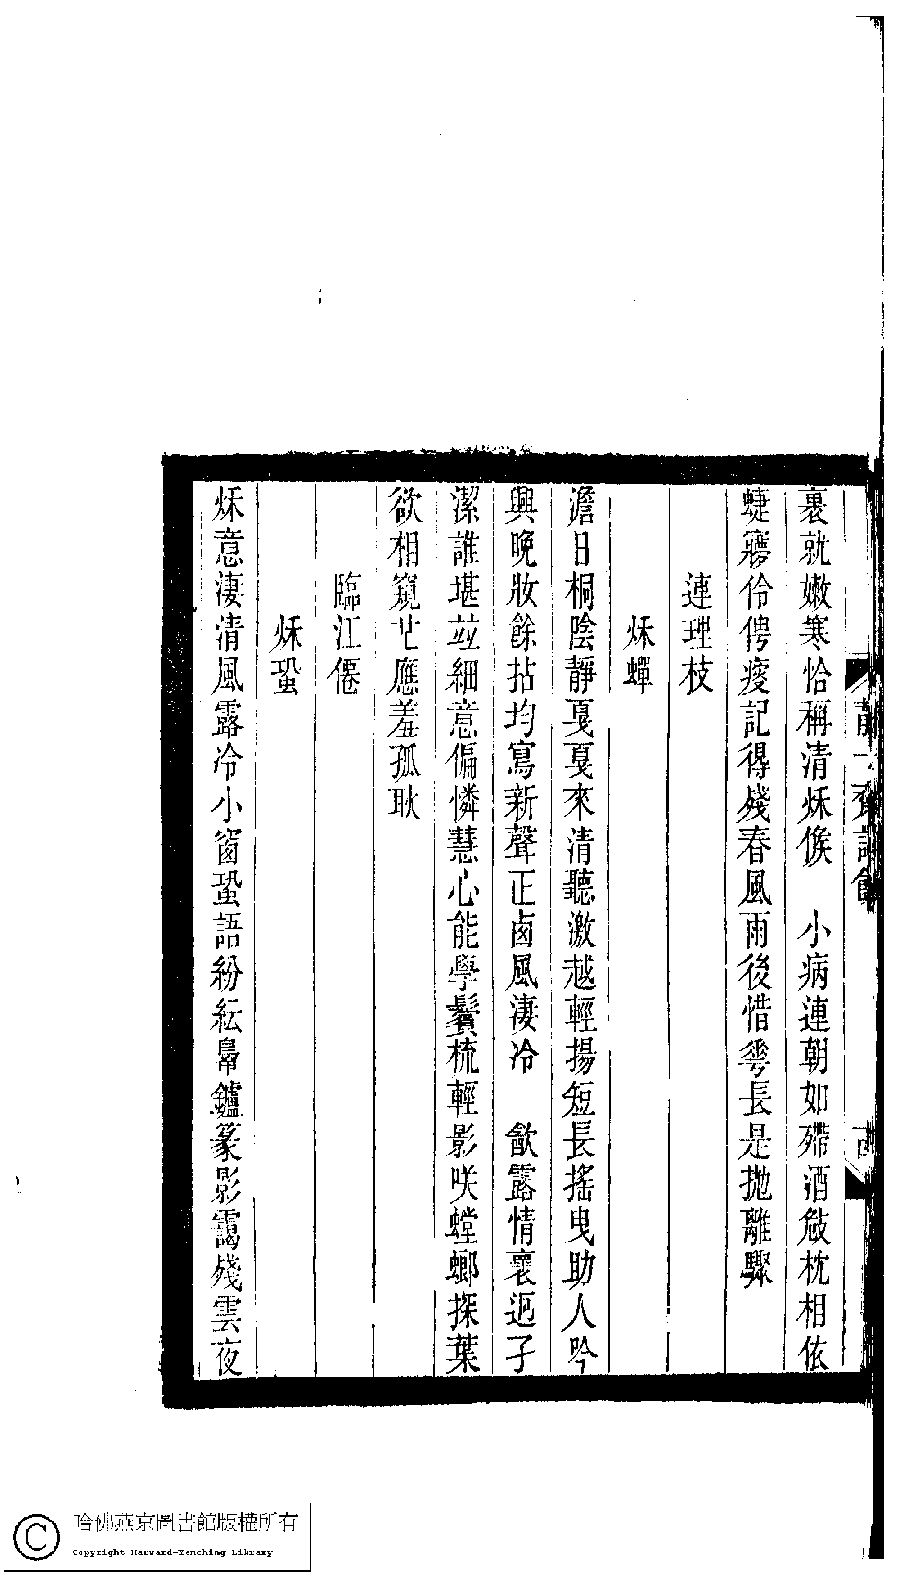 裹就嫩寒恰稱清秌候　小病連朝如殢酒敧枕相依
蜨寱伶俜瘦記得殘春風雨後惜雩長是抛離驟
連理枝
秌蟬
澹日桐陰靜戛戛來清聽激越輕揚短長搖曳助人吟
興晚妝餘拈均寫新聲正卤風淒冷　歙露情褱迥孑
潔誰堪竝細意偏憐慧心能學鬢梳輕影咲螳螂探葉
欲相窺也應羞孤耿
臨江僊
秌蛩
秌意淒清風露冷小窗蛩語紛紜鼻鑪篆影靄殘雲夜
靜一齋詩餘
哈佛燕京圖書館版權所有
Copyright Harvard-Yenching Library